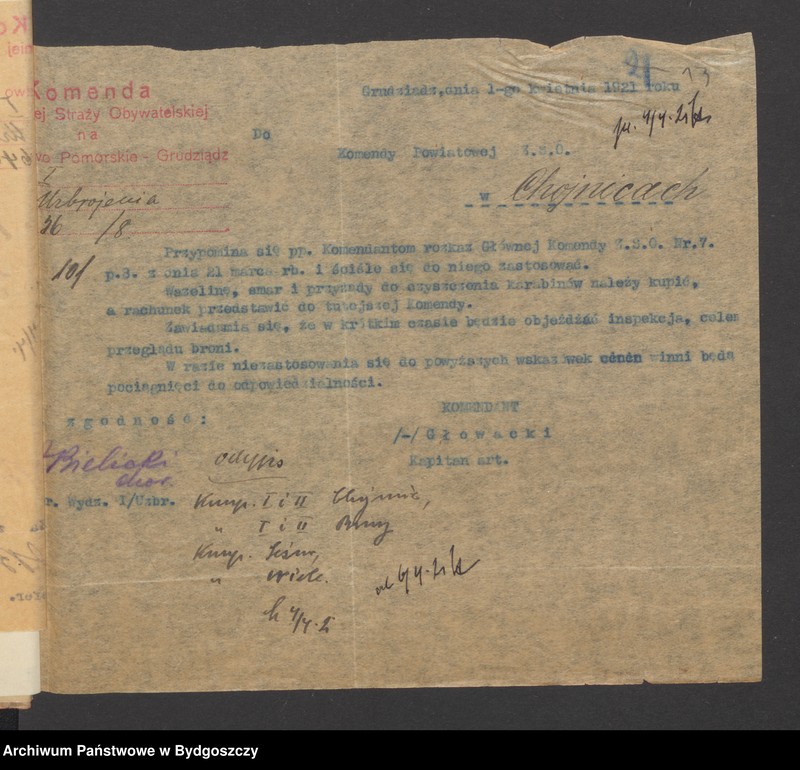 Komenda
ej Straży Obywatelskiej
na
wo Pomorskie - Grudziądz
I
Uzbrojenia
36 /8
101
Grudziądz, dnia 1-go kwietnia 1921 roku
13
Do
Komendy Powiatowej Z.S.O.
w Chojnicach
Przypomina się pp. Komendantom rozkaz Głównej Komendy Z.S.O. Nr.7.
p.3. z dnia 21 marca rb. i ściśle się do niego zastosować.
Wazelinę, smar i przyrządy do czyszczenia karabinów należy kupić,
a rachunek przedstawić do tutejszej Komendy.
Zawiadamia się, że w krótkim czasie będzie objeżdżać inspekcja, celem
przeglądu broni.
W razie niezastosowania się do powyższych wskazówek winni będą
pociągnięci do odpowiedzialności.
KOMENDANT
/-/ Głowacki
Kapitan art.
zgodność:
Bielicki
chor.
r. Wydz. I/Uzbr.
odpis
Komp. I i II
" I i II
Komp.
" Wiele.
Archiwum Państwowe w Bydgoszczy